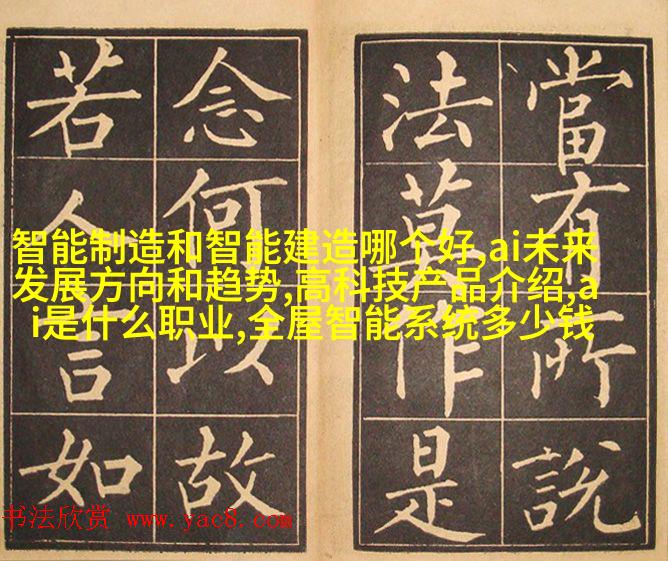 當有所說
法莫作是
念何以故
若人言如
智能制造和智能建造哪个好,ai未来
发展方向和趋势,高科技产品介绍,a
i是什么职业,全屋智能系统多少钱
书法欣赏 www.yac8.com